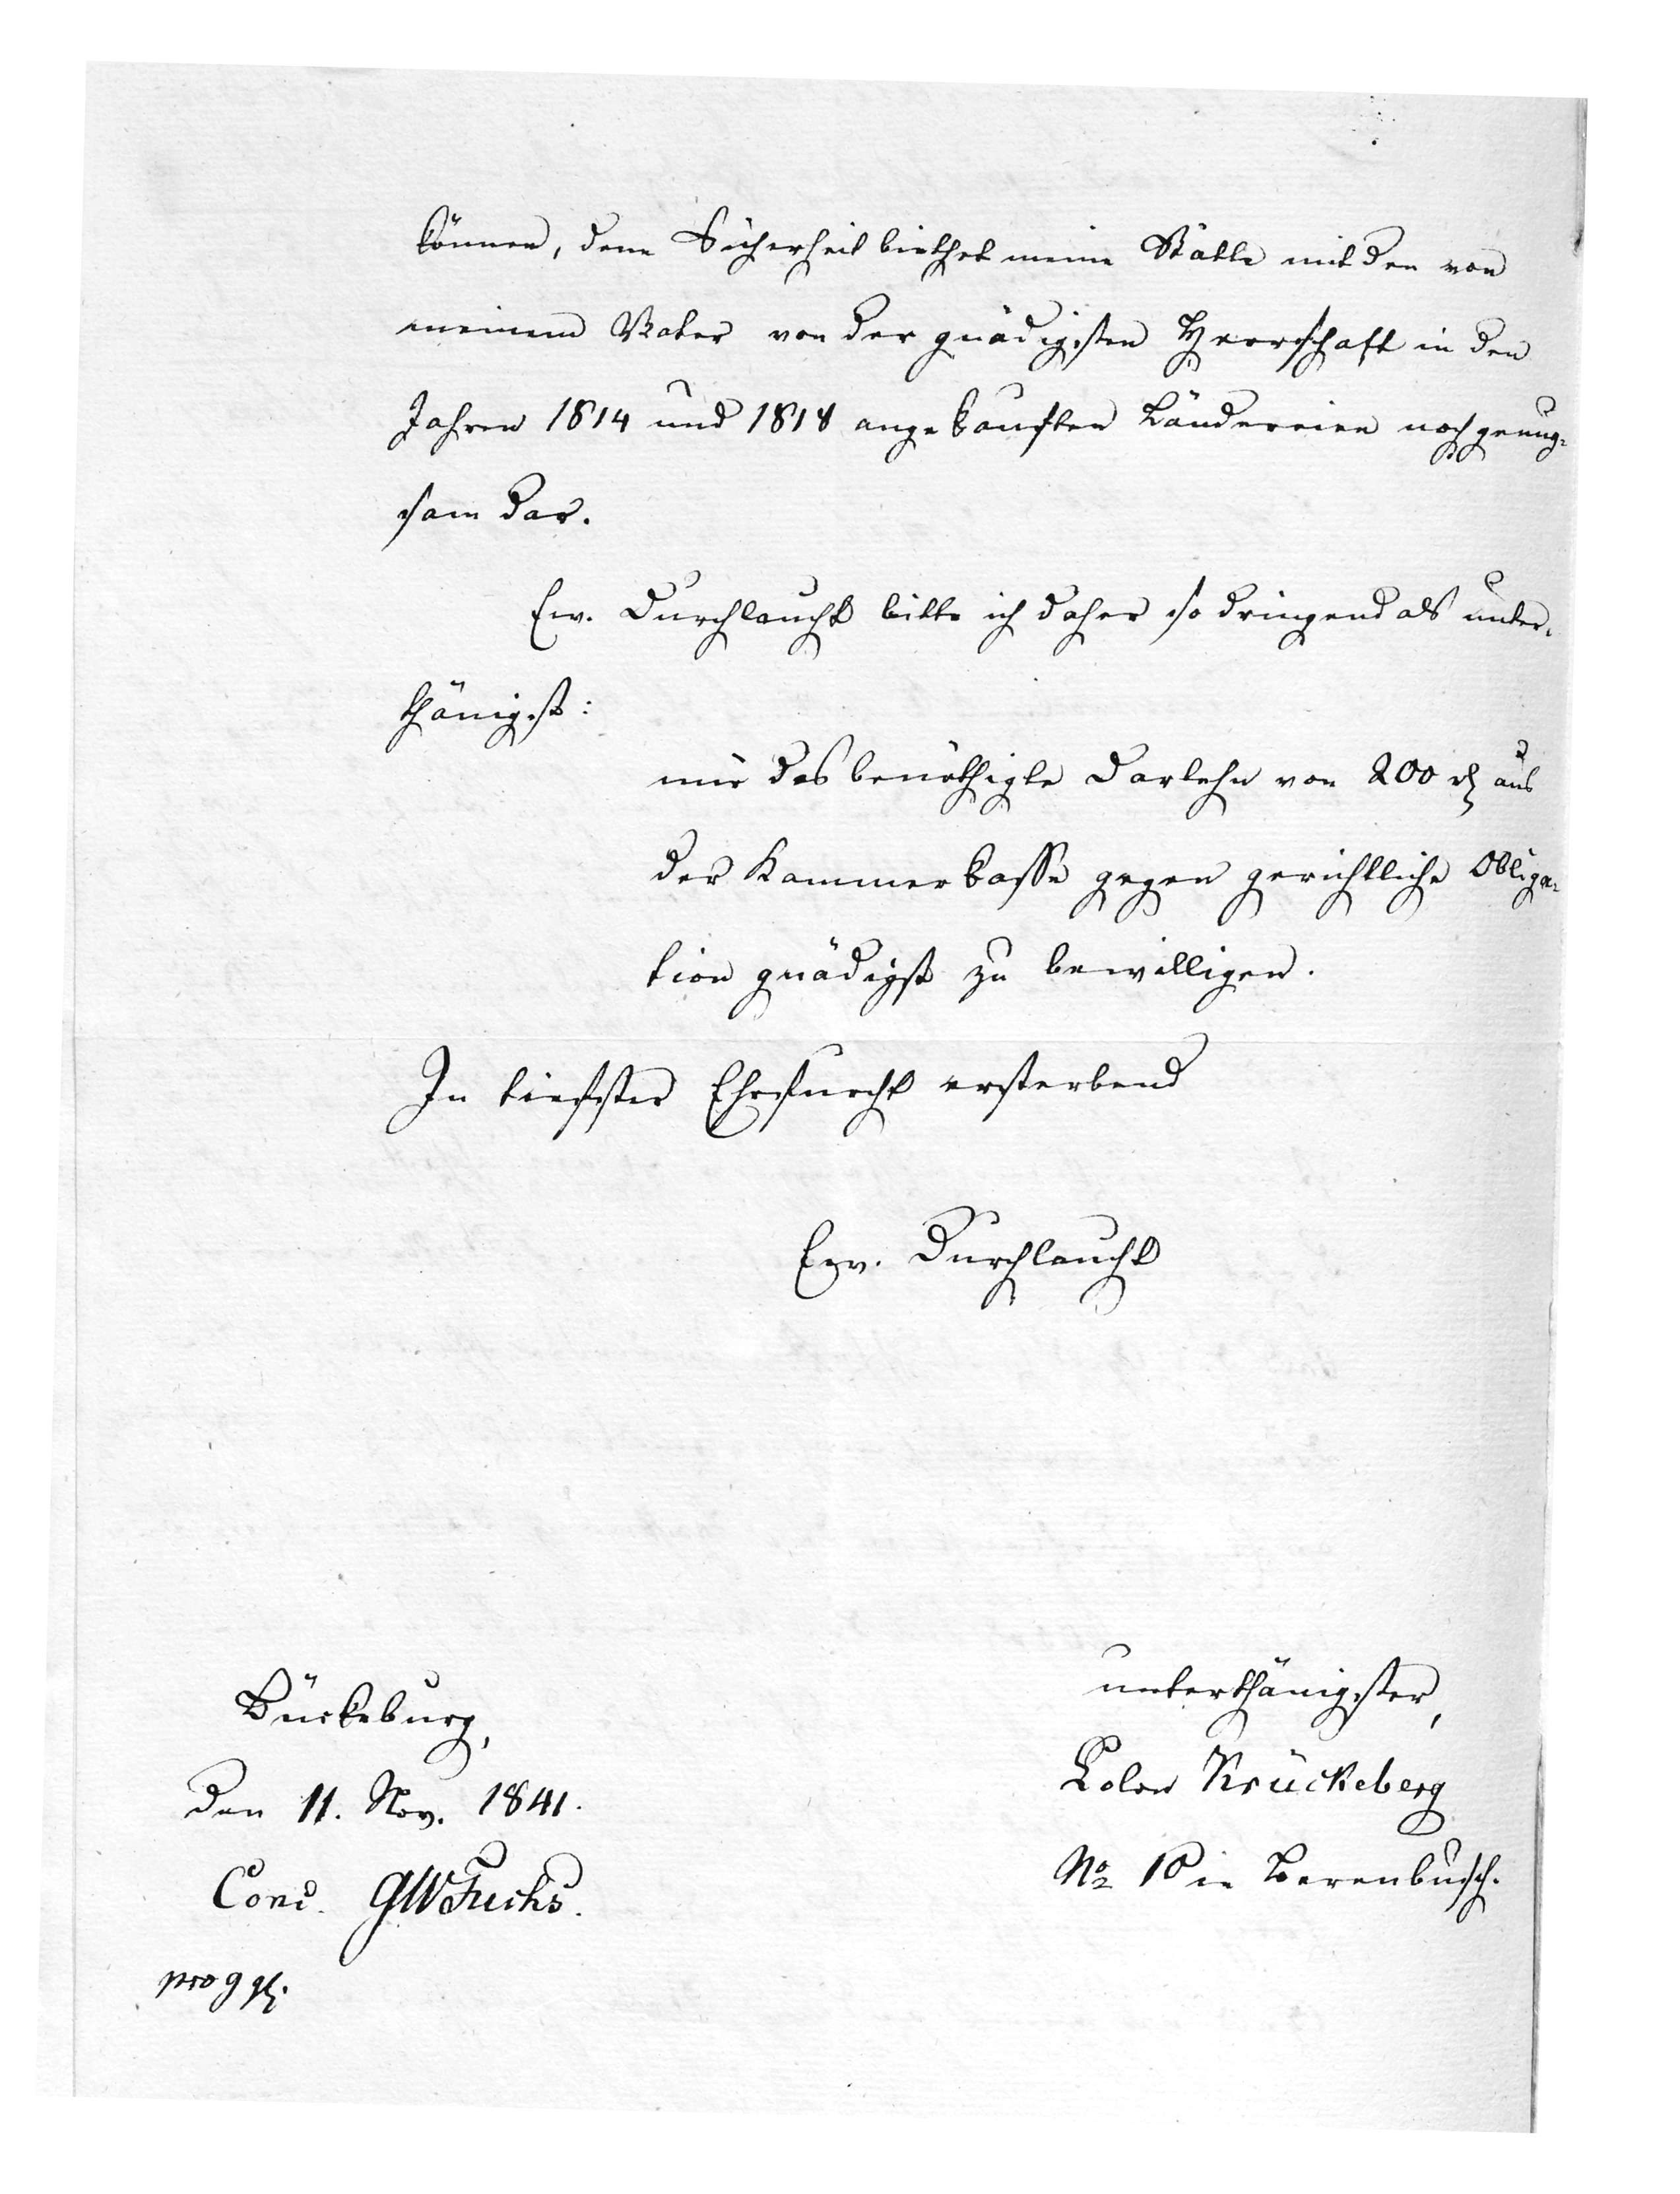 können, denn Sicherheit biethet meine Stätte mit den von
meinem Vater von der gnädigsten Herrschaft in den
Jahren 1814 und 1818 angekauften Ländereien noch genug-
sam dar.
Ew. Durchlaucht bitte ich daher so dringend als unter-
thänigst:
mir das benöthigte Darlehn von 200 rh aus
der Kammerkasse gegen gerichtliche Obliga-
tion gnädigst zu bewilligen.
In tiefster Ehrfurcht ersterbend
Ew. Durchlaucht
unterthänigster,
Colon Krückeberg
No 10 in Berenbusch.
Bückeburg,
den 11. Nov. 1841.
Conc. GWFuchs.
pro 9 gh.